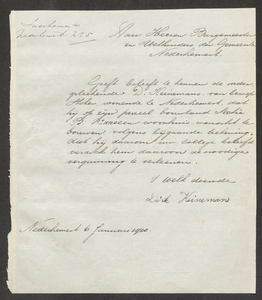 Aan Heeren Burgemeester
en Wethouders der Gemeente
Nederhemert.
Geeft beleefd te kennen de onder-
geteekende D. Heineman, van beroep
wonende te Nederhemert, dat
hij op zijn perceel bouwland Sectie
B woonhuis wenscht te
bouwen volgens bijgaande teekening,
dat hij daarom uw college beleefd
verzoekt hem daarvoor de noodige
vergunning te verleenen.
't Welk doende
Dirk Heineman
Nederhemert 6 Januari 1920.